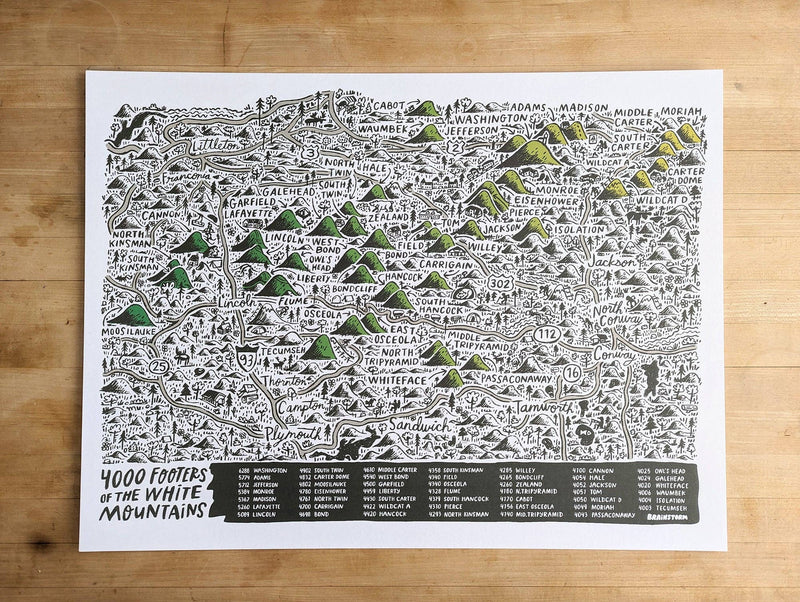 CABOT
ADAMS
MADISON
MIDDLE
CARTER
MORIAH
WASHINGTON
WAUMBEK
JEFFERSON
SOUTH
CARTER
Littleton
3
2
NORTH
TWIN
HALE
WILDCAT A
CARTER
DOME
Franconia
GALEHEAD
SOUTH
TWIN
MONROE
EISENHOWER
WILDCAT D
GARFIELD
LAFAYETTE
ZEALAND
TOM
PIERCE
CANNON
JACKSON
ISOLATION
NORTH
KINSMAN
LINCOLN
WEST
BOND
FIELD
WILLEY
BOND
SOUTH
KINSMAN
OWL'S
HEAD
CARRIGAIN
Jackson
LIBERTY
HANCOCK
BONDCLIFF
302
Lincoln
FLUME
SOUTH
HANCOCK
OSCEOLA
North
Conway
MOOSILAUKE
EAST
OSCEOLA
MIDDLE
TRIPYRAMID
112
93
TECUMSEH
NORTH
TRIPYRAMID
Conway
25
Thornton
WHITEFACE
PASSACONAWAY
16
Campton
Tamworth
Plymouth
Sandwich
4000 FOOTERS
OF THE WHITE
MOUNTAINS
6288 WASHINGTON
5774 ADAMS
5712 JEFFERSON
5384 MONROE
5367 MADISON
5260 LAFAYETTE
5089 LINCOLN
4902 SOUTH TWIN
4832 CARTER DOME
4802 MOOSILAUKE
4780 EISENHOWER
4761 NORTH TWIN
4700 CARRIGAIN
4698 BOND
4610 MIDDLE CARTER
4540 WEST BOND
4500 GARFIELD
4459 LIBERTY
4430 SOUTH CARTER
4422 WILDCAT A
4420 HANCOCK
4358 SOUTH KINSMAN
4340 FIELD
4340 OSCEOLA
4328 FLUME
4319 SOUTH HANCOCK
4310 PIERCE
4293 NORTH KINSMAN
4285 WILLEY
4265 BONDCLIFF
4260 ZEALAND
4180 N.TRIPYRAMID
4170 CABOT
4156 EAST OSCEOLA
4140 MID.TRIPYRAMID
4100 CANNON
4054 HALE
4052 JACKSON
4051 TOM
4050 WILDCAT D
4049 MORIAH
4043 PASSACONAWAY
4025 OWL'S HEAD
4024 GALEHEAD
4020 WHITEFACE
4006 WAUMBEK
4004 ISOLATION
4003 TECUMSEH
BRAINSTORM